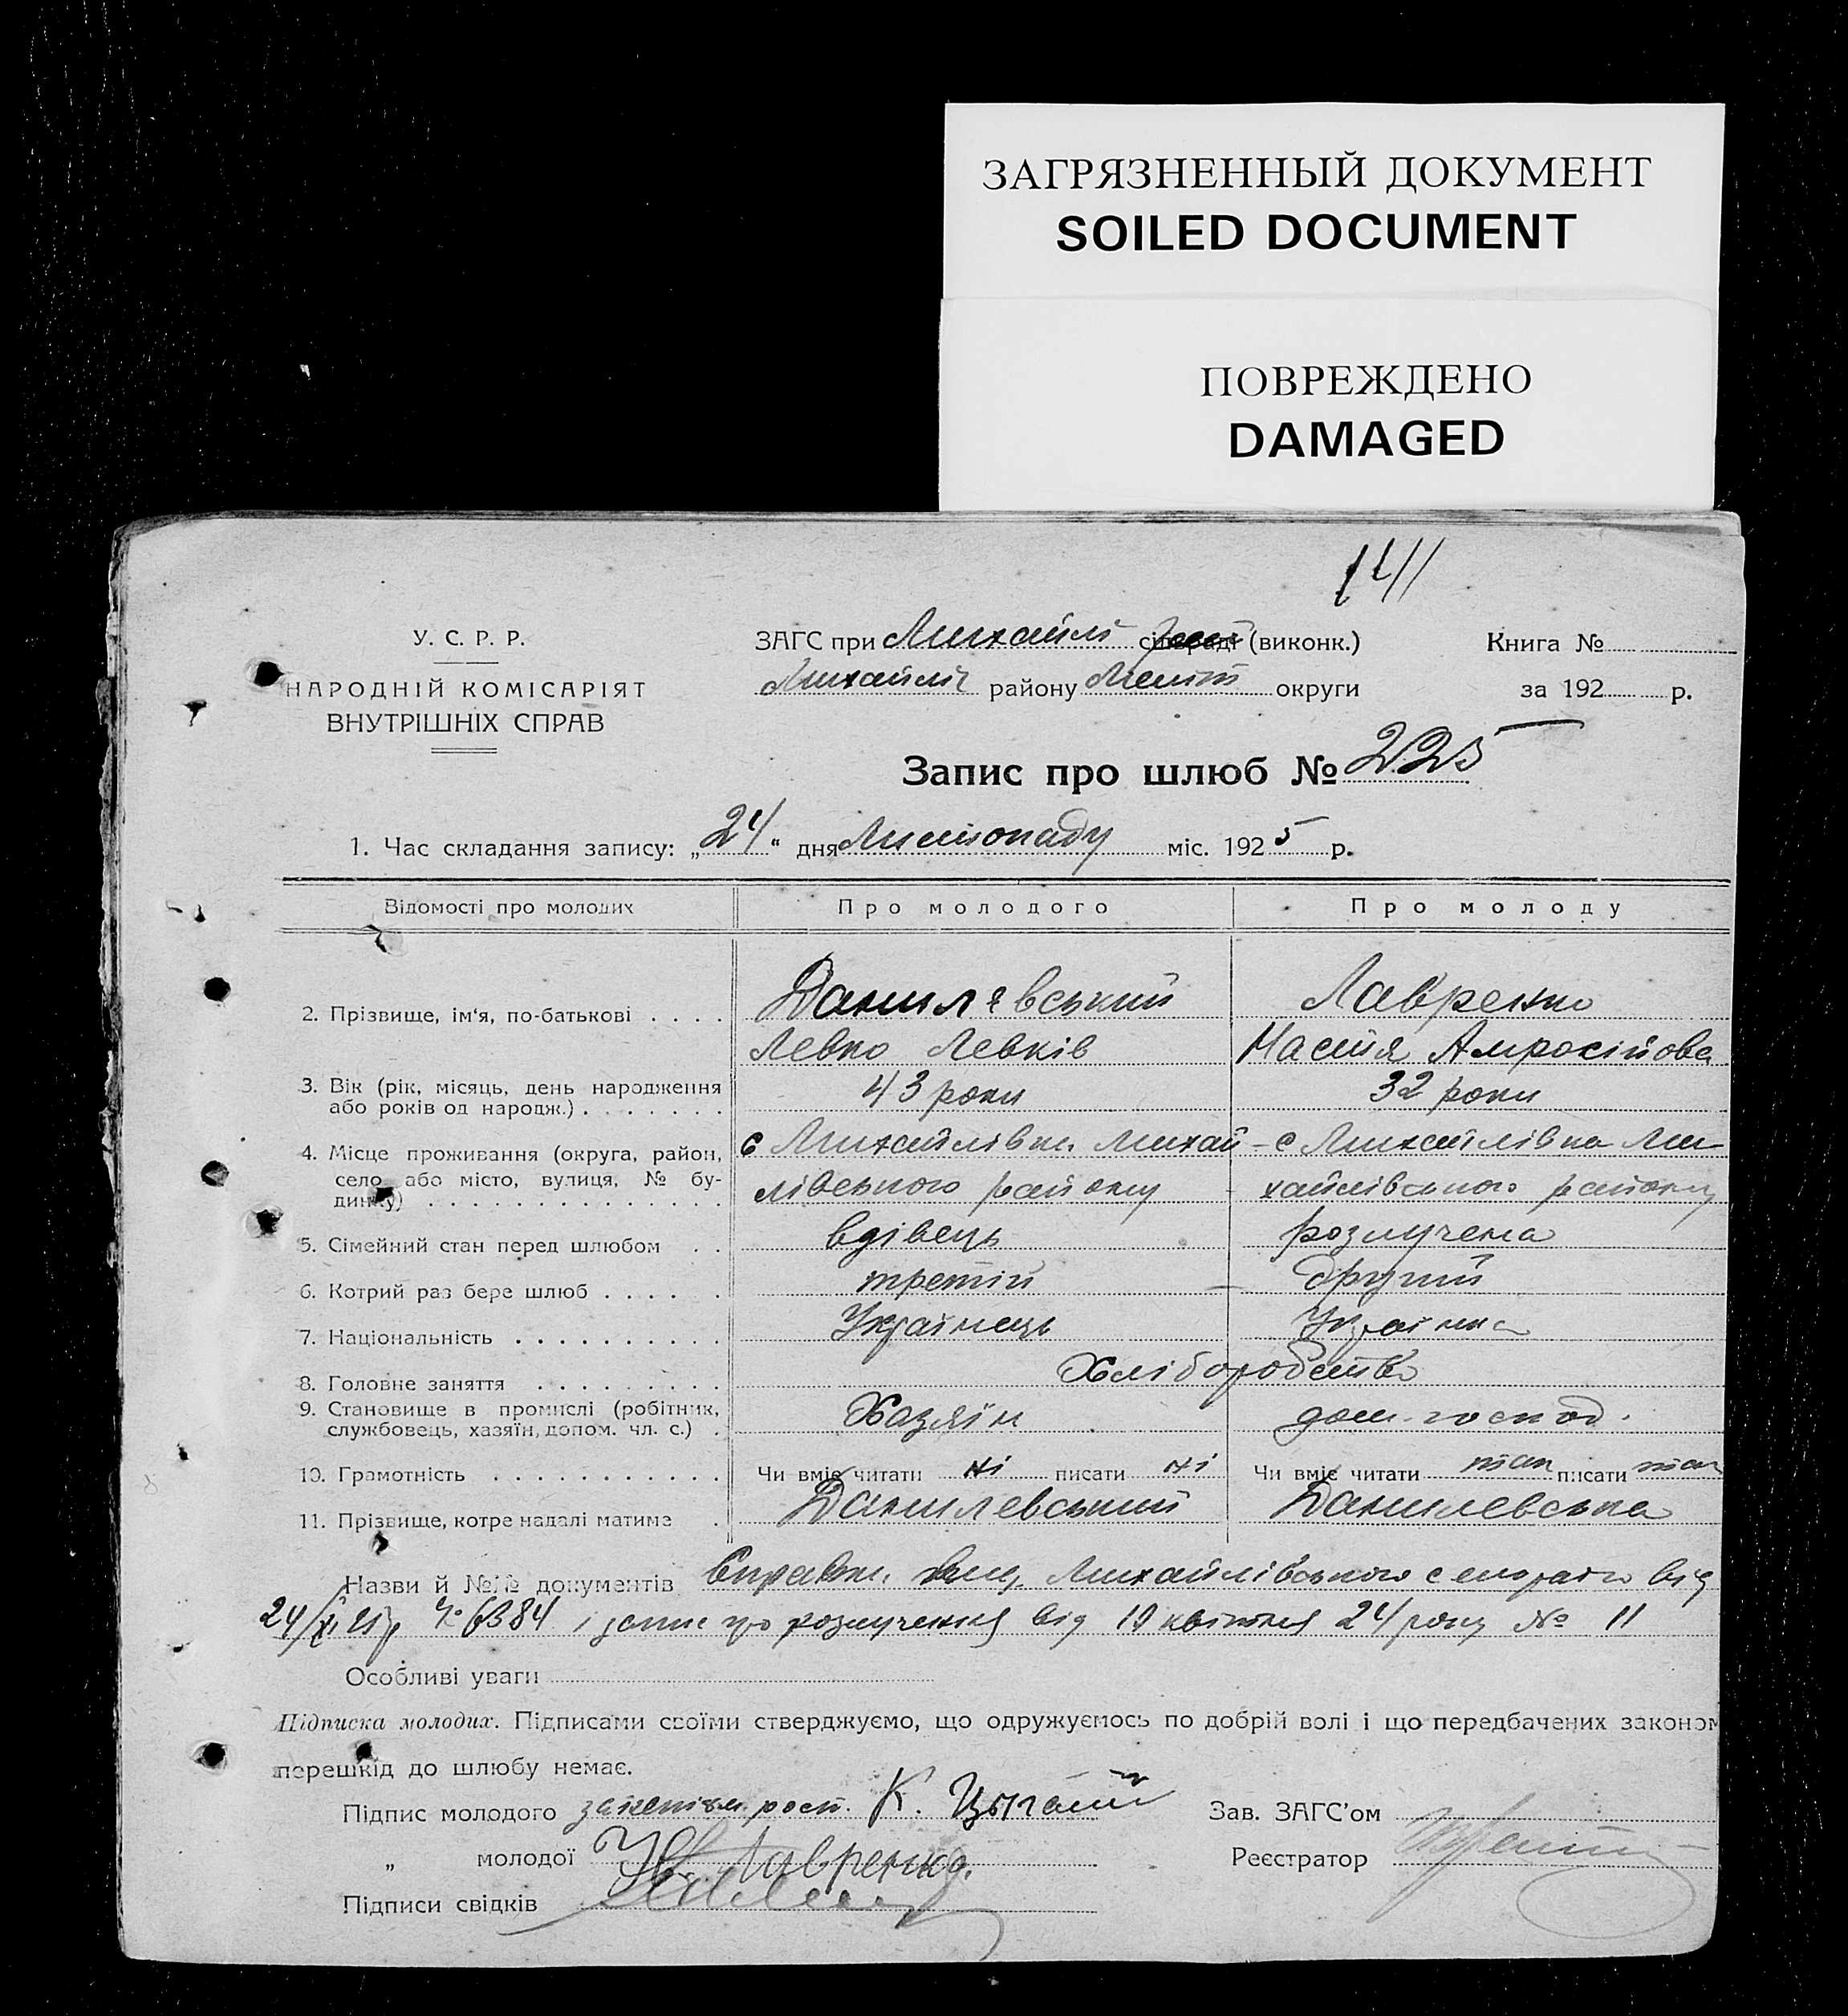 ЗАГРЯЗНЕННЫЙ ДОКУМЕНТ
SOILED DOCUMENT
ПОВРЕЖДЕНО
DAMAGED
У. С. Р. Р.
НАРОДНІЙ КОМІСАРІЯТ
ВНУТРІШНІХ СПРАВ
ЗАГС при Михайлі сільраді (виконк.)
Михайлів району Меліт округи
Книга №
за 192 р.
Запис про шлюб № 225
1. Час складання запису: „24“ дня Листопаду міс. 1925 р.
Відомості про молодих Про молодого Про молоду
2. Прізвище, ім‘я, по-батькові Данилевський Лавренко
Левко Левків Настя Амросійова
3. Вік (рік, місяць, день народження 43 роки 32 роки
або років од народж.)
4. Місце проживання (округа, район, с Михайлівка Михай- с Михайлівка Ми-
село або місто, вулиця, № бу- лівського району хайлівського району
динку)
5. Сімейний стан перед шлюбом вдівець розлучена
6. Котрий раз бере шлюб третій другий
7. Національність Українець Українка
8. Головне заняття Хліборобство
9. Становище в промислі (робітник, Хазяїн дом. господ.
службовець, хазяїн, допом. чл. с.)
10. Грамотність Чи вміє читати ні писати ні Чи вміє читати так писати так
11. Прізвище, котре надалі матиме Данилевський Данилевська
Назви й №№ документів Михайлівського від
24/XI 25р № 6384 і запис про розлучення від 19 квітня 24 року № 11
Особливі уваги
Підписка молодих. Підписами своїми стверджуємо, що одружуємось по добрій волі і що передбачених законом
перешкід до шлюбу немає.
Підпис молодого К. Цыган Зав. ЗАГС’ом
„ молодої Лавренко Реєстратор
Підписи свідків